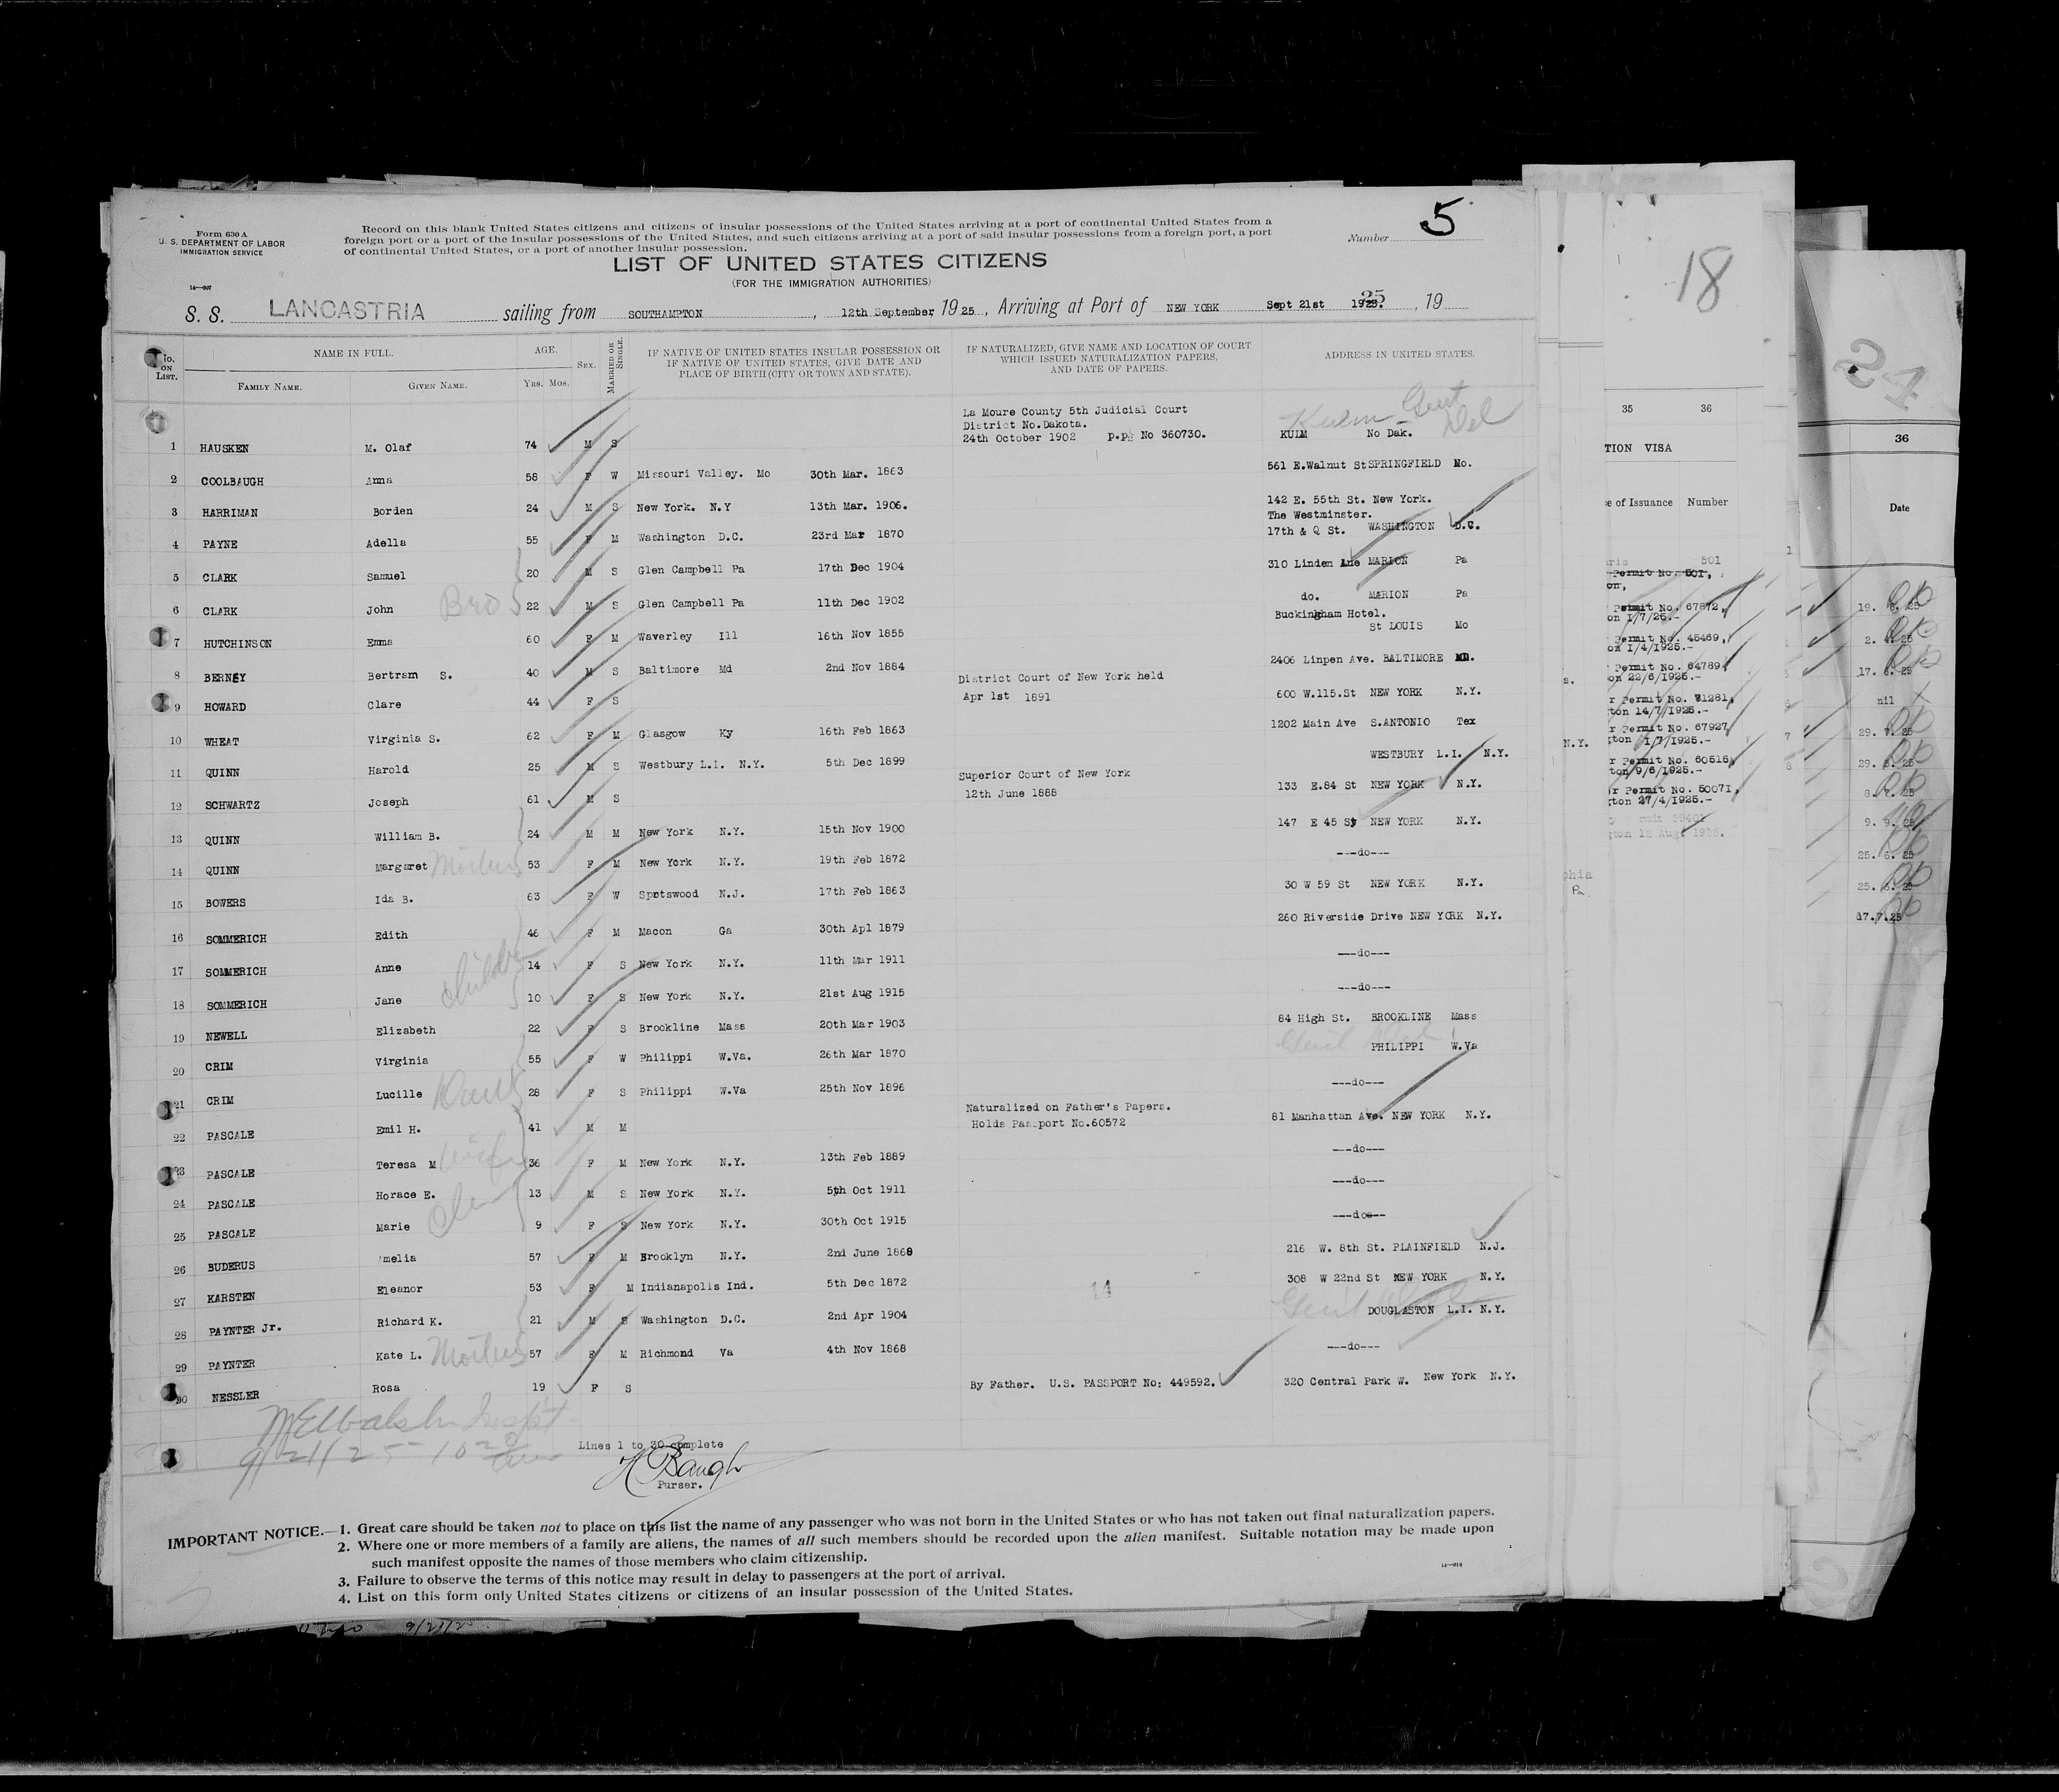 Form 630 A
U. S. DEPARTMENT OF LABOR
IMMIGRATION SERVICE
Record on this blank United States citizens and citizens of insular possessions of the United States arriving at a port of continental United States from a
foreign port or a port of the insular possessions of the United States, and such citizens arriving at a port of said insular possessions from a foreign port, a port
of continental United States, or a port of another insular possession.
Number 5
LIST OF UNITED STATES CITIZENS
(FOR THE IMMIGRATION AUTHORITIES)
S. S. LANCASTRIA sailing from SOUTHAMPTON, 12th September, 1925, Arriving at Port of NEW YORK Sept 21st 1925. , 19
No. ON LIST. NAME IN FULL. FAMILY NAME. GIVEN NAME. AGE. Yrs. Mos. SEX. MARRIED OR SINGLE. IF NATIVE OF UNITED STATES INSULAR POSSESSION OR IF NATIVE OF UNITED STATES, GIVE DATE AND PLACE OF BIRTH (CITY OR TOWN AND STATE). IF NATURALIZED, GIVE NAME AND LOCATION OF COURT WHICH ISSUED NATURALIZATION PAPERS, AND DATE OF PAPERS. ADDRESS IN UNITED STATES.
La Moure County 5th Judicial Court
District No.Dakota.
1 HAUSKEN M. Olaf 74 M S 24th October 1902 p.p. No 360730. KULM No Dak.
2 COOLBAUGH Anna 58 F W Missouri Valley. Mo 30th Mar. 1863 561 E.Walnut St SPRINGFIELD Mo.
3 HARRIMAN Borden 24 M S New York. N.Y 13th Mar. 1906. 142 E. 55th St. New York.
The Westminster.
4 PAYNE Adella 55 F M Washington D.C. 23rd Mar 1870 17th & Q St. WASHINGTON D.C.
5 CLARK Samuel 20 M S Glen Campbell Pa 17th Dec 1904 310 Linden Lne MARION Pa
6 CLARK John Bro 22 M S Glen Campbell Pa 11th Dec 1902 do. MARION Pa
Buckingham Hotel.
7 HUTCHINSON Emma 60 F M Waverley Ill 16th Nov 1855 St LOUIS Mo
8 BERNEY Bertram S. 40 M S Baltimore Md 2nd Nov 1884 2406 Linpen Ave. BALTIMORE MD.
District Court of New York held
9 HOWARD Clare 44 F S Apr 1st 1891 600 W.115.St NEW YORK N.Y.
10 WHEAT Virginia S. 62 F M Glasgow Ky 16th Feb 1863 1202 Main Ave S.ANTONIO Tex
11 QUINN Harold 25 M S Westbury L.I. N.Y. 5th Dec 1899 WESTBURY L.I. N.Y.
Superior Court of New York
12 SCHWARTZ Joseph 61 M S 12th June 1888 133 E.84 St NEW YORK N.Y.
13 QUINN William B. 24 M M New York N.Y. 15th Nov 1900 147 E 45 St NEW YORK N.Y.
14 QUINN Margaret Mother 53 F M New York N.Y. 19th Feb 1872 ---do---
15 BOWERS Ida B. 63 F W Spotswood N.J. 17th Feb 1863 30 W 59 St NEW YORK N.Y.
16 SOMMERICH Edith 46 F M Macon Ga 30th Apl 1879 260 Riverside Drive NEW YORK N.Y.
17 SOMMERICH Anne 14 F S New York N.Y. 11th Mar 1911 ---do---
18 SOMMERICH Jane children 10 F S New York N.Y. 21st Aug 1915 ---do---
19 NEWELL Elizabeth 22 F S Brookline Mass 20th Mar 1903 84 High St. BROOKLINE Mass
20 CRIM Virginia 55 F W Philippi W.Va. 26th Mar 1870 PHILIPPI W.Va
21 CRIM Lucille 28 F S Philippi W.Va 25th Nov 1896 ---do---
Naturalized on Father's Papers.
22 PASCALE Emil H. 41 M M Holds Passport No.60572 81 Manhattan Ave. NEW YORK N.Y.
23 PASCALE Teresa M wife 36 F M New York N.Y. 13th Feb 1889 ---do---
24 PASCALE Horace E. 13 M S New York N.Y. 5th Oct 1911 ---do---
25 PASCALE Marie 9 F S New York N.Y. 30th Oct 1915 ---do---
26 BUDERUS Amelia 57 F M Brooklyn N.Y. 2nd June 1868 216 W. 8th St. PLAINFIELD N.J.
27 KARSTEN Eleanor 53 F M Indianapolis Ind. 5th Dec 1872 14 308 W 22nd St NEW YORK N.Y.
28 PAYNTER Jr. Richard K. 21 M S Washington D.C. 2nd Apr 1904 DOUGLASTON L.I. N.Y.
29 PAYNTER Kate L. Mother 57 F M Richmond Va 4th Nov 1868 ---do---
30 NESSLER Rosa 19 F S By Father. U.S. PASSPORT No: 449592. 320 Central Park W. New York N.Y.
9/21/25
Lines 1 to 30 complete
H Baugh
Purser.
IMPORTANT NOTICE.—1. Great care should be taken not to place on this list the name of any passenger who was not born in the United States or who has not taken out final naturalization papers.
2. Where one or more members of a family are aliens, the names of all such members should be recorded upon the alien manifest. Suitable notation may be made upon
such manifest opposite the names of those members who claim citizenship.
3. Failure to observe the terms of this notice may result in delay to passengers at the port of arrival.
4. List on this form only United States citizens or citizens of an insular possession of the United States.
18
35 36
TION VISA
e of Issuance Number
501
Permit No. 501,
on,
Permit No. 67872,
on 1/7/25.-
Permit No. 45469,
on 1/4/1925.-
Permit No. 64789,
on 22/6/1925.-
r Permit No. 71281,
ton 14/7/1925.-
r Permit No. 67927,
ton 1/7/1925.-
r Permit No. 60515,
ton 9/6/1925.-
r Permit No. 50071,
ton 27/4/1925.-
s.
N.Y.
phia
Pa.
24
36
Date
nil
17.7.25